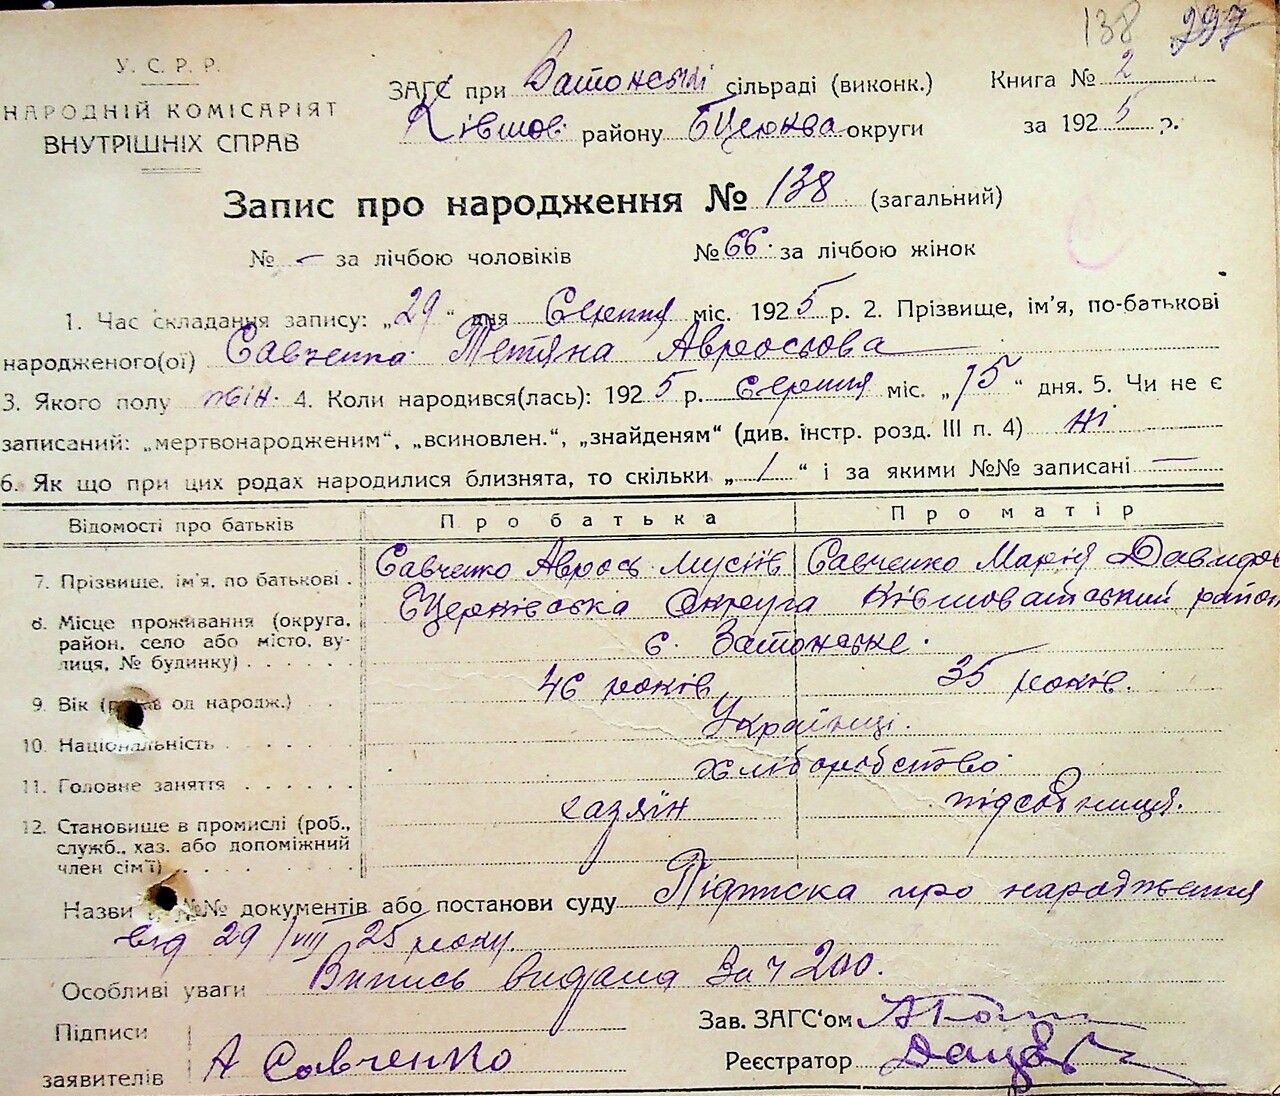 138 297
У. С. Р. Р.
НАРОДНІЙ КОМІСАРІЯТ
ВНУТРІШНІХ СПРАВ
ЗАГС при Затонській сільраді (виконк.)
Ківшов. району БЦерква округи
Книга № 2
за 1925 р.
Запис про народження № 138 (загальний)
№ – за лічбою чоловіків № 66. за лічбою жінок
1. Час складання запису: „29“ дня Серпня міс. 1925 р. 2. Прізвище, ім'я, по-батькові
народженого(ої) Савченко Тетяна Авросьова
3. Якого полу жін. 4. Коли народився(лась): 1925 р. Серпня міс. „15“ дня. 5. Чи не є
записаний: „мертвонародженим“, „всиновлен.“, „знайденям“ (див. інстр. розд. III п. 4) ні
6. Як що при цих родах народилися близнята, то скільки „/“ і за якими №№ записані —
Відомості про батьків Про батька Про матір
7. Прізвище, ім'я, по батькові . Савченко Аврось Мусіїв Савченко Марія Давидов
8. Місце проживання (округа, район, село або місто, вулиця, № будинку) . . . . . БЦерківська Округа Ківшоватський район
с. Затонське.
9. Вік (років од народж.) . 46 років 35 років.
10. Національність . . . . . . Українці.
11. Головне заняття . . . . . . хліборобство
12. Становище в промислі (роб., служб., хаз. або допоміжний член сім'ї) . . . . . . . хазяїн підсобниця.
Назви й №№ документів або постанови суду Підписка про народження
від 29/VIII 25 року.
Особливі уваги Випись видана За ч 200.
Підписи
заявителів А Савченко
Зав. ЗАГС'ом
Реєстратор